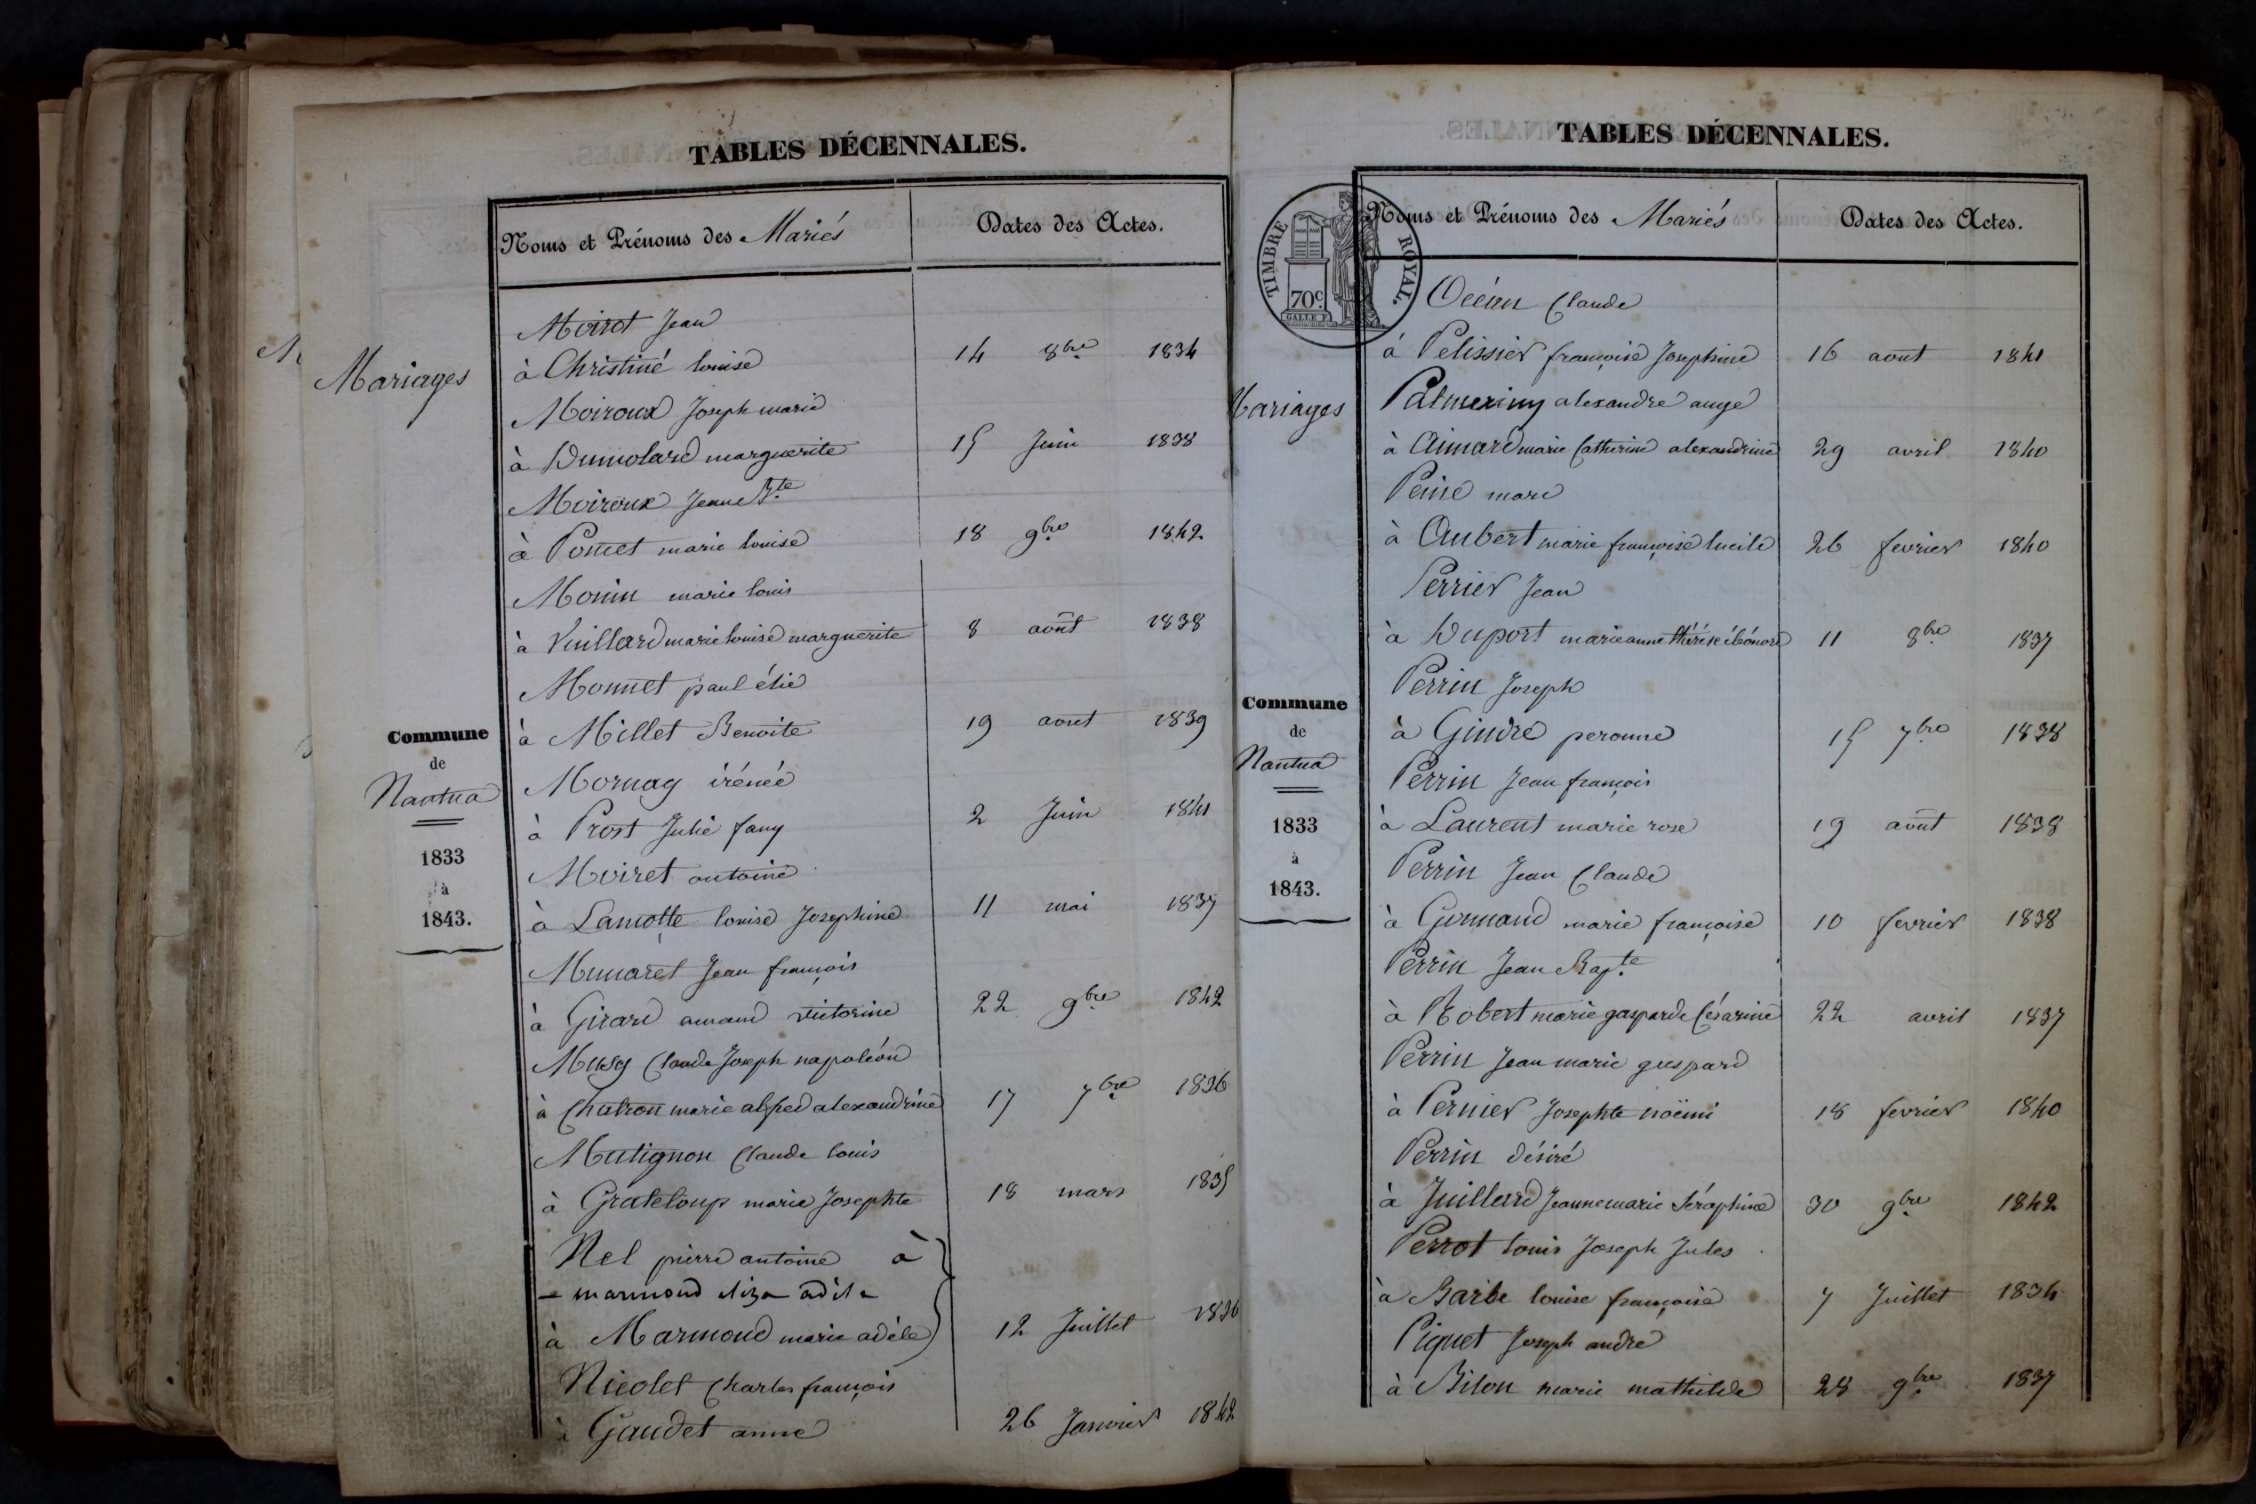 TABLES DÉCENNALES.
Noms et Prénoms des Mariés
Dates des Actes.
Mariages
Commune
de
Nantua
1833
à
1843.
Moiret Jean
à Christiné louise 14 8bre 1834
Moiroux Joseph marie
à Dumolard marguerite 15 Juin 1838
Moiroux Jean Bte
à Pomet marie louise 18 9bre 1842
Monin marie louis
à Vuillard marie louise marguerite 8 août 1838
Monnet paul élie
à Millet Benoite 19 aout 1839
Mornay irénée
à Prost Julie fany 2 Juin 1841
Moiret antoine
à Lamotte louise Josephine 11 mai 1837
Munaret Jean françois
à Girard amand victorine 22 9bre 1842
Musy Claude Joseph napoléon
à Chatron marie alfred alexandrine 17 7bre 1836
Mutignon Claude louis
à Grateloup marie Josephte 18 mars 1835
Nel pierre antoine à
marmond eliza adèle
à Marmond marie adèle 12 Juillet 1836
Nicolet Charles françois
à Gaudet anne 26 Janvier 1842
TABLES DÉCENNALES.
TIMBRE ROYAL.
70c.
GALLE F.
Noms et Prénoms des Mariés
Dates des Actes.
Mariages
Commune
de
Nantua
1833
à
1843.
Claude
à Pelissier françoise Josephine 16 aout 1841
Palmeriny alexandre ange
à Aimard marie Catherine alexandrine 29 avril 1840
Peine marc
à Aubert marie françoise lucile 26 fevrier 1840
Perrier Jean
à Duport marie anne thérèse éléonore 11 8bre 1837
Perrin Joseph
à Gindre peronne 15 7bre 1838
Perrin Jean françois
à Laurent marie rose 19 août 1838
Perrin Jean Claude
à marie françoise 10 fevrier 1838
Perrin Jean Bapte
à Robert marie gasparde Césarine 22 avril 1837
Perrin Jean marie gaspard
à Pernier Josephte noëmi 18 fevrier 1840
Perrin désiré
à Juillard Jeanne marie Séraphine 30 9bre 1842
Perrot louis Joseph Jules
à Barbe louise françoise 7 Juillet 1834
Piquet Joseph andre
à Bilon marie mathilde 28 9bre 1837